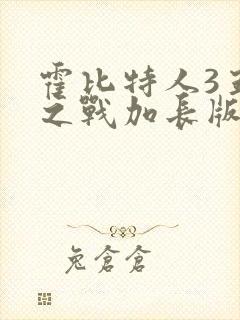 霍比特人3五
之戰加長版
兔倉倉